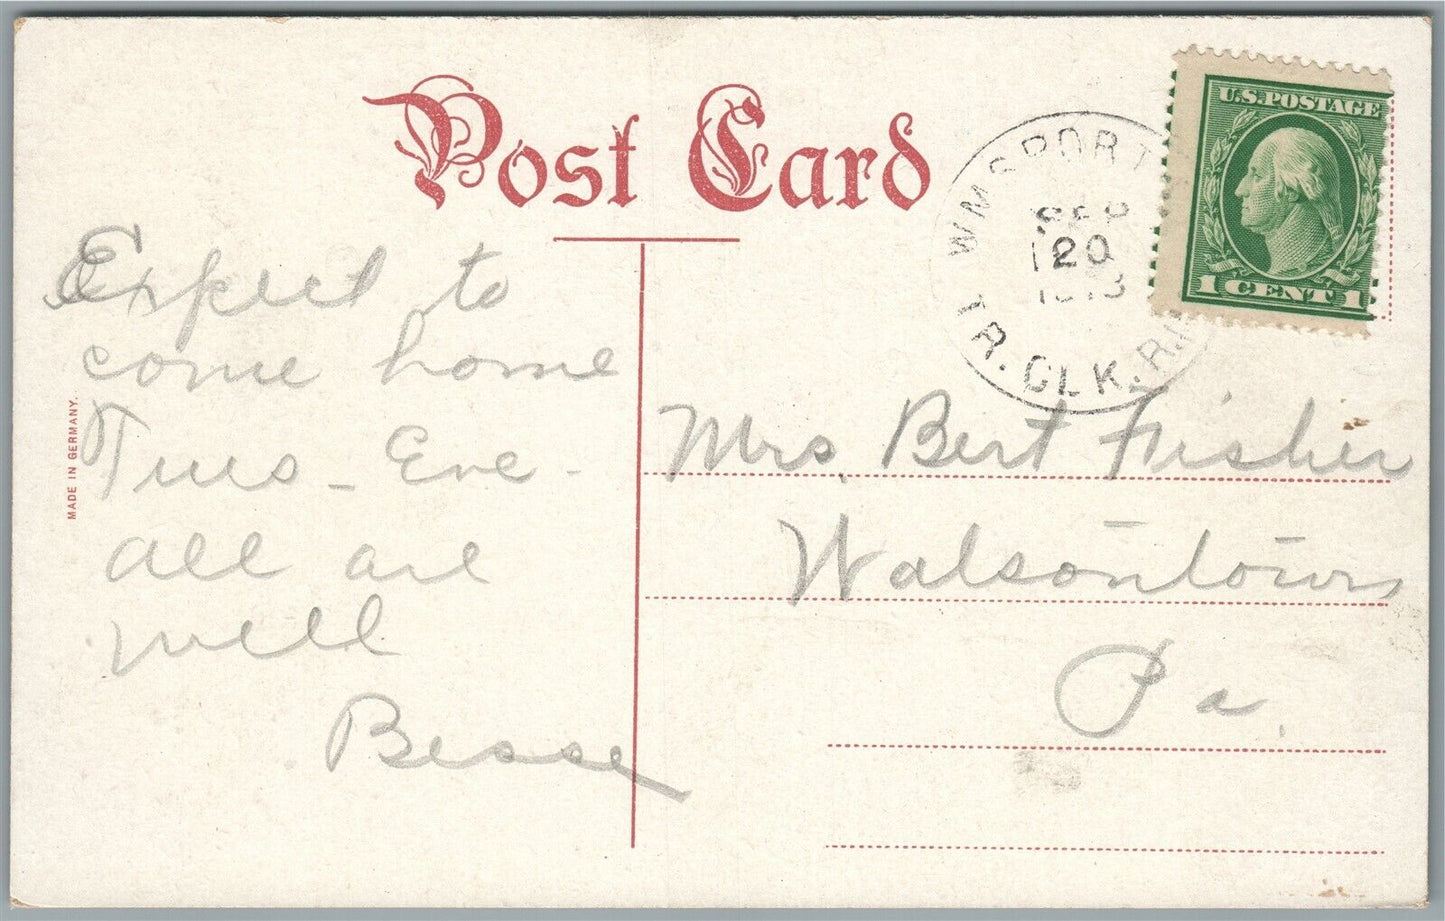 Post Card
U.S. POSTAGE
1 CENT 1
WMSPORT
SEP
20
1913
TR. CLK. R.
MADE IN GERMANY.
Expect to
come home
Tues - Eve -
all are
well
Besse
Mrs. Bert Fisher
Watsontown
Pa.